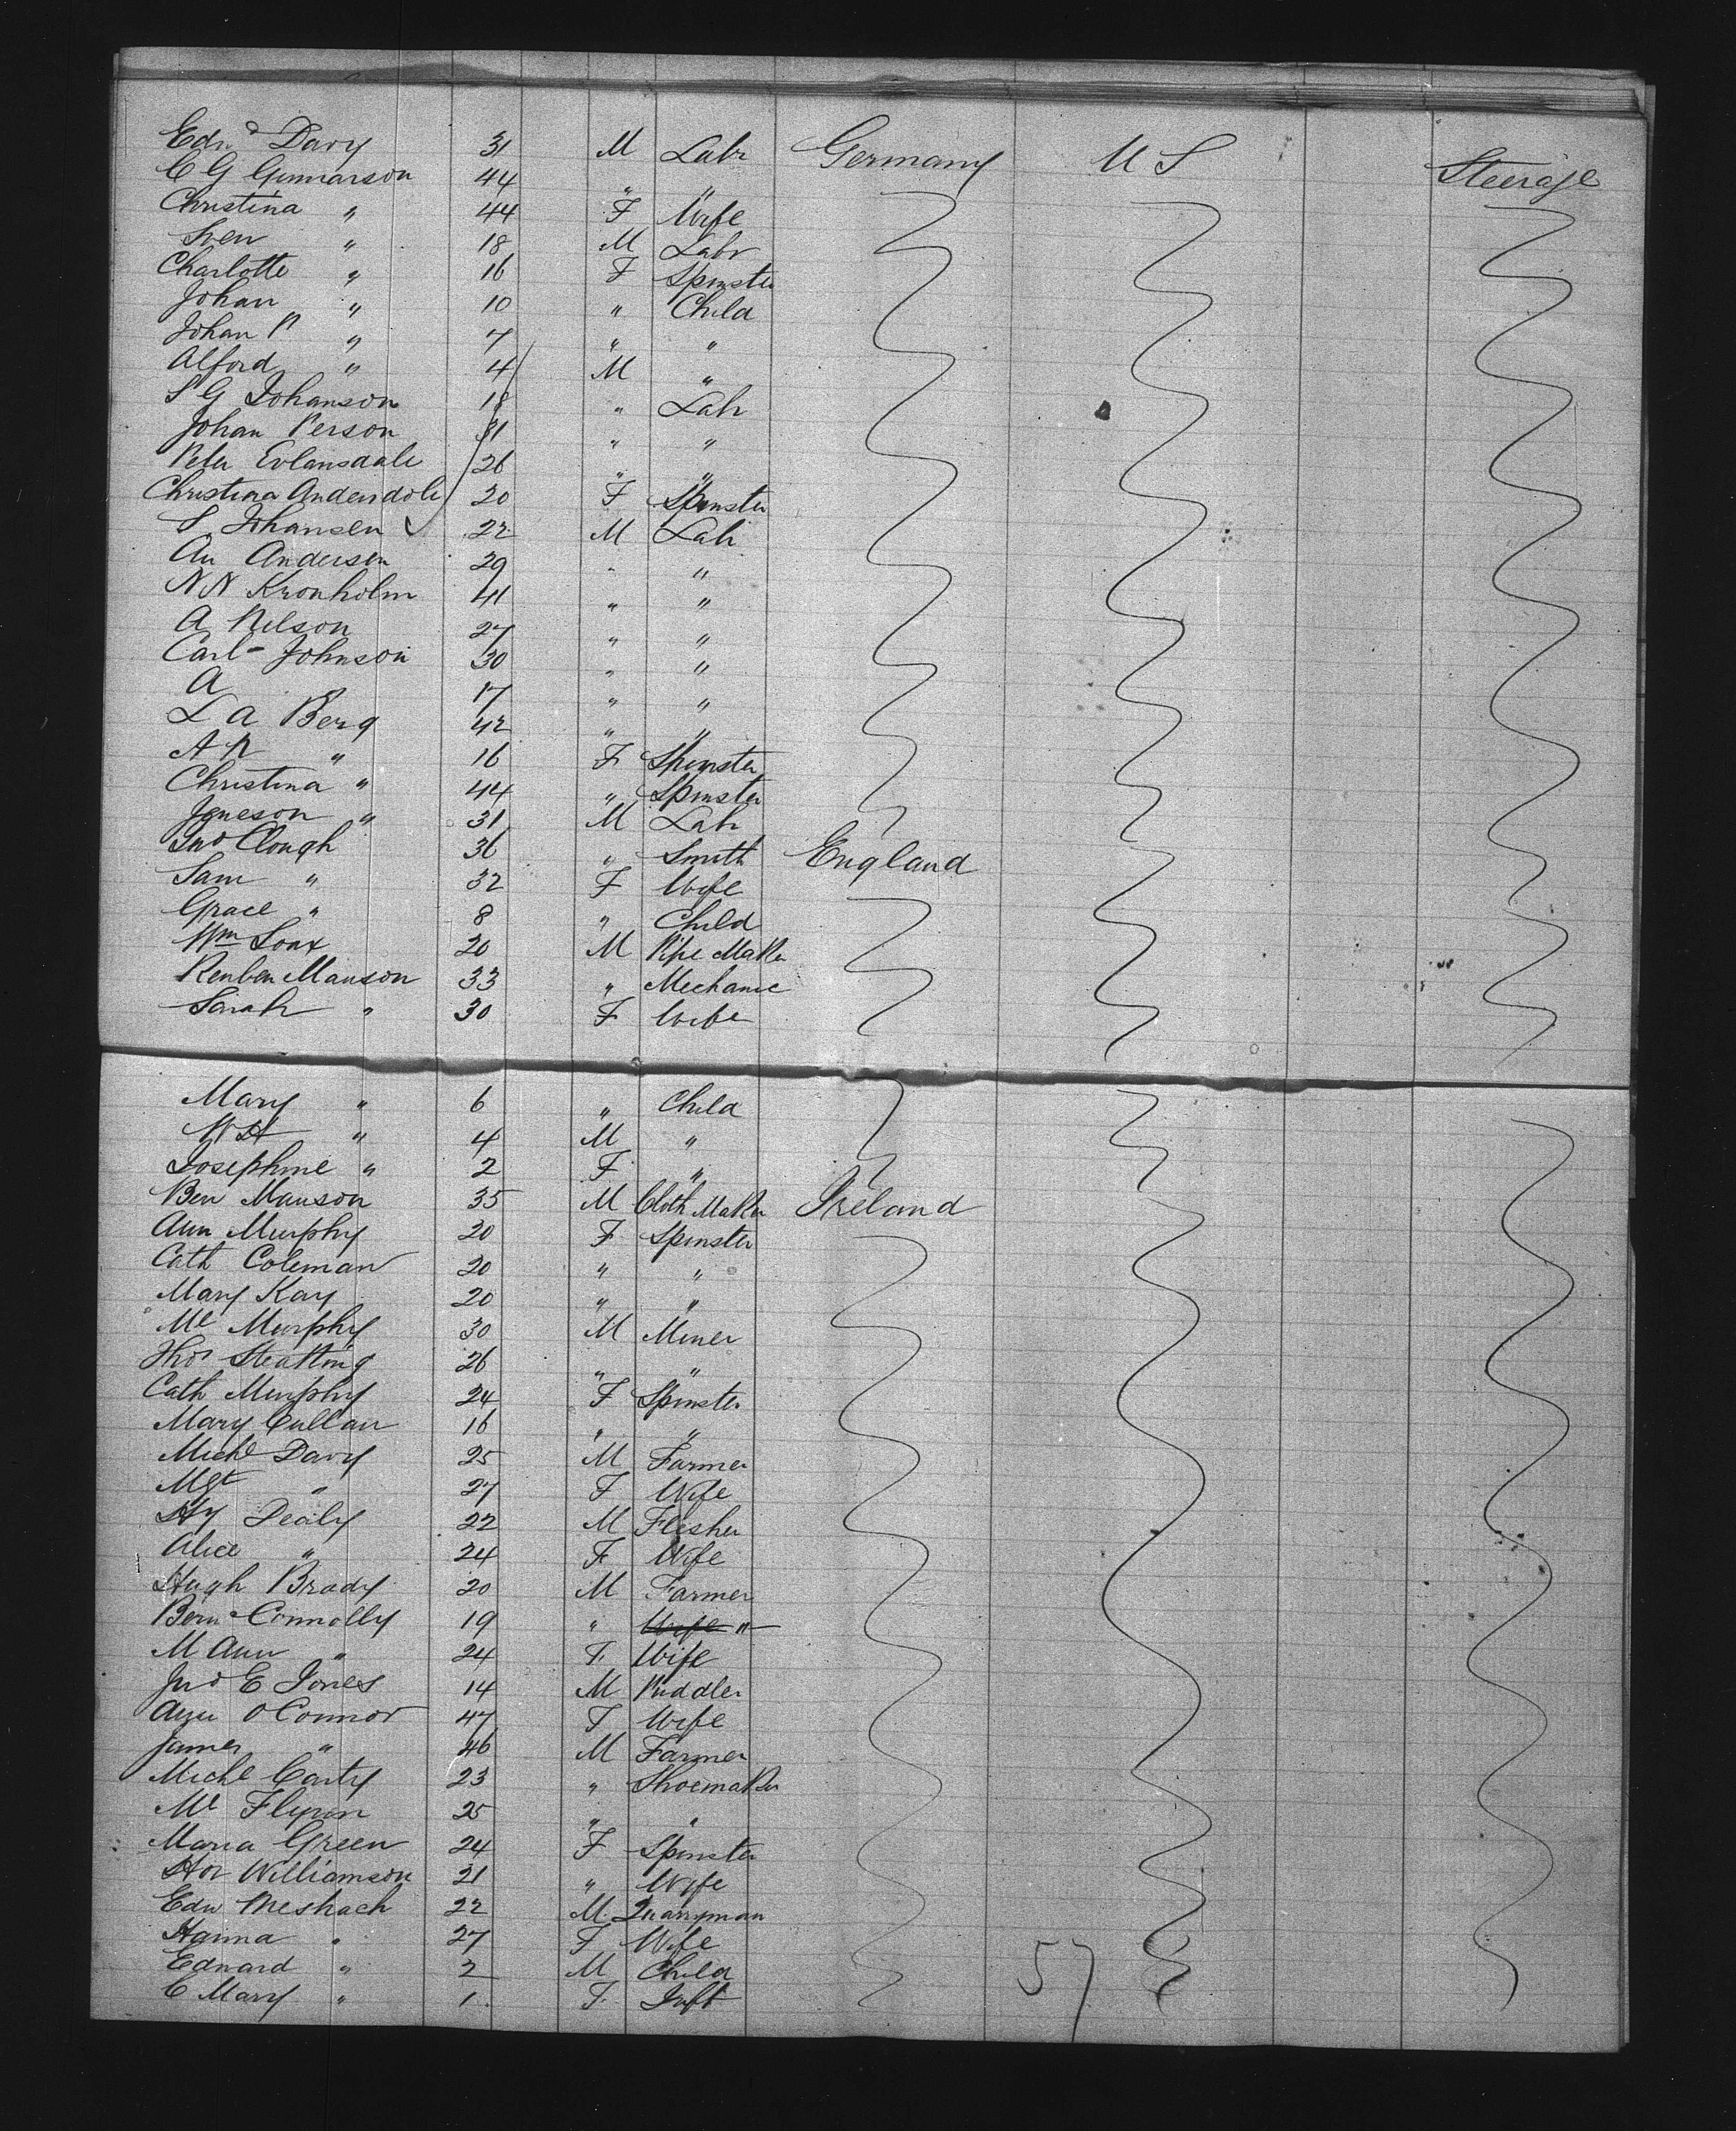 Edwd Davy 31 M Labr Germany U S Steerage
C G Gunnarson 44 " "
Christina " 44 F Wife
Sven " 18 M Labr
Charlotte " 16 F Spinster
Johan " 10 " Child
Johan P " 7 " "
Alford " 4 M "
S G Johanson 18 " Labr
Johan Person 31 " "
Peter Evlansdale 26 " "
Christina Andersdole 20 F Spinster
S Johansen 22 M Labr
An Andersen 29 " "
N N Kronholm 41 " "
A Nelson 27 " "
Carl Johnson 30 " "
A 17 " "
L A Berg 42 " "
A P " 16 F Spinster
Christina " 44 " Spinster
Joneson " 31 M Labr
Jno Clough 36 " Smith England
Sam " 32 F Wife
Grace " 8 " Child
Wm Loax 20 M Pipe Maker
Reuben Manson 33 " Mechanic
Sarah " 30 F Wife
Mary " 6 " Child
W H " 4 M "
Josephine " 2 F "
Ben Manson 35 M Cloth Maker Ireland
Ann Murphy 20 F Spinster
Cath Coleman 20 " "
Mary Kay 20 " "
Ml Murphy 30 M Miner
Thos Steakling 26 " "
Cath Murphy 24 F Spinster
Mary Cullan 16 " "
Michl Davy 25 M Farmer
Mgt " 27 F Wife
Hy Dealy 22 M Flesher
Alice " 24 F Wife
Hugh Brady 20 M Farmer
Bern Connolly 19 " Wife "
M Ann " 24 F Wife
Jno E Jones 14 M Puddler
O'Connor 47 F Wife
James " 46 M Farmer
Michl Carty 23 " Shoemaker
Ml Flynn 25 " "
Maria Green 24 F Spinster
Hor Williamson 21 " Wife
Edw Meshach 22 M Quarryman
Hanna " 27 F Wife
Edward " 2 M Child
C Mary " 1 F Inft
57